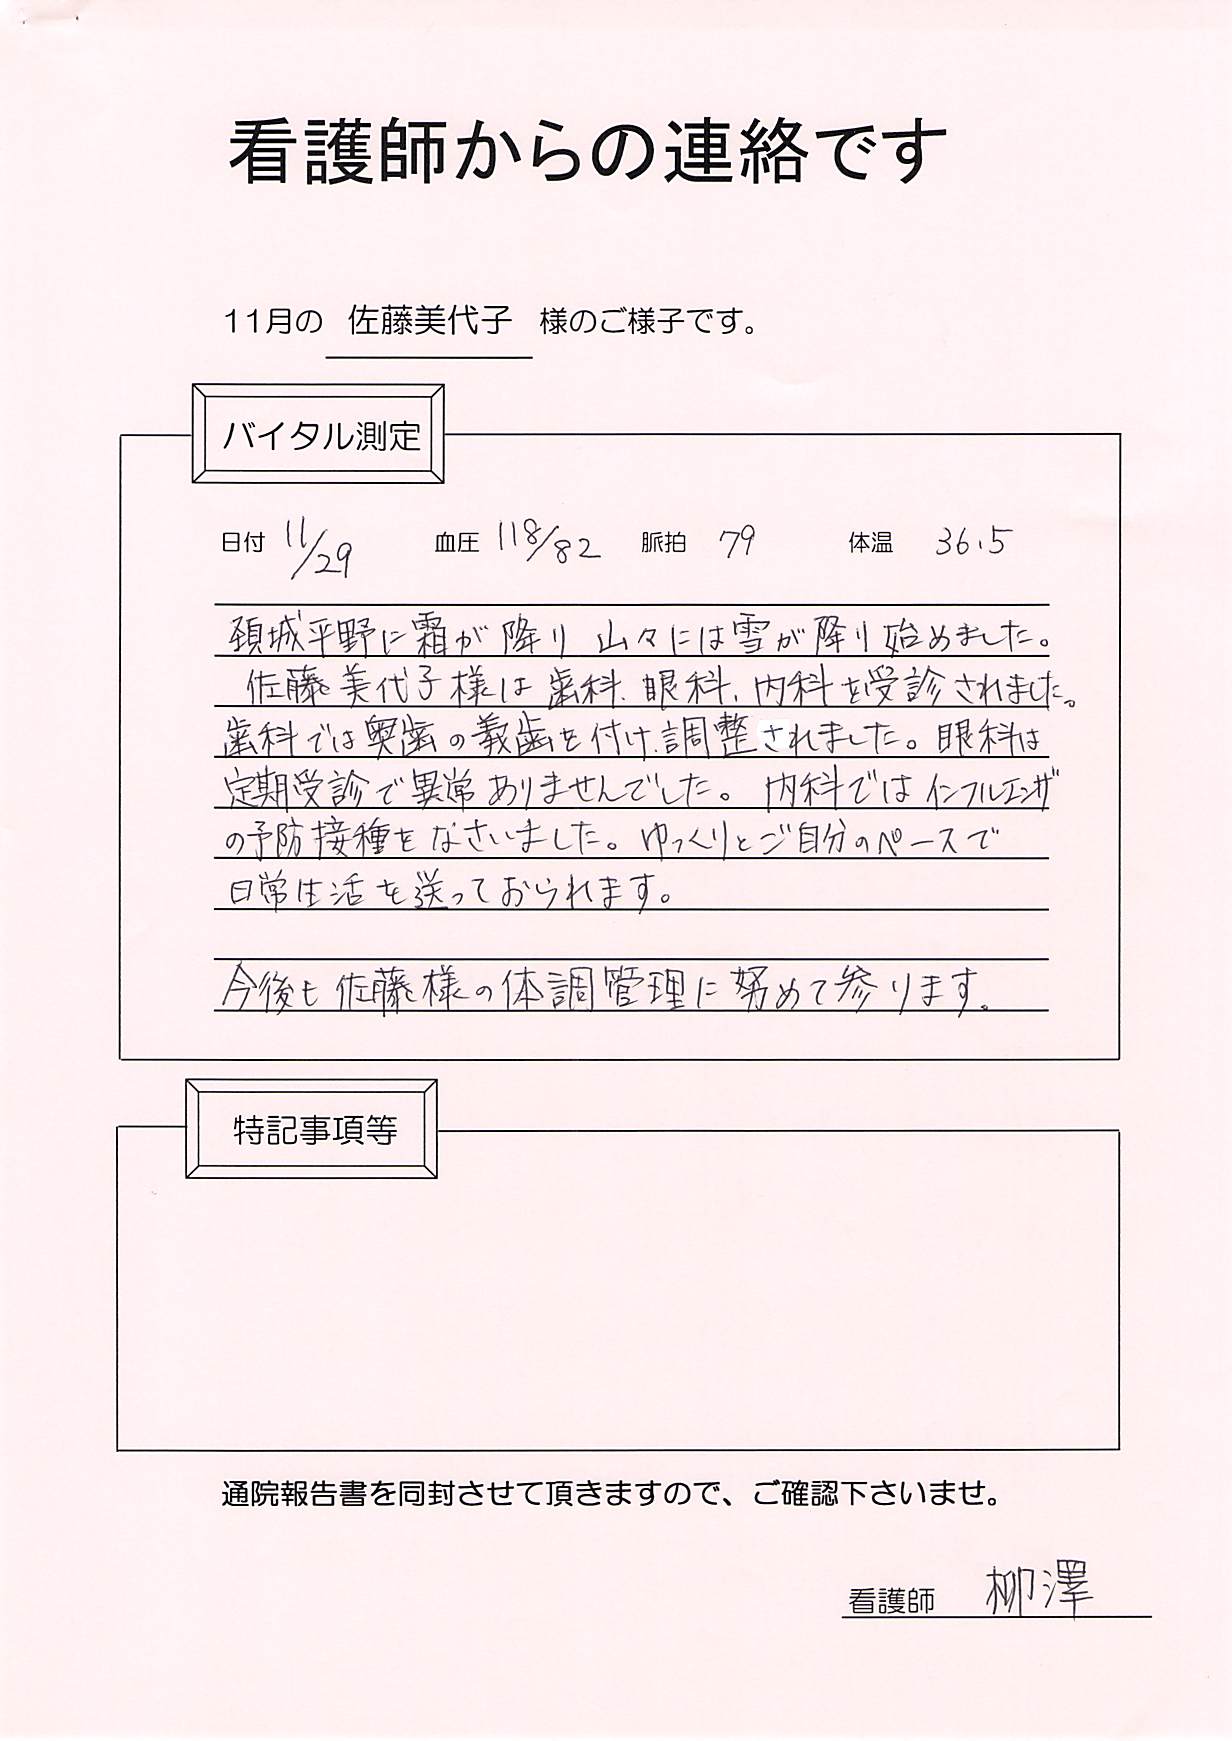 看護師からの連絡です
11月の 佐藤美代子 様のご様子です。
バイタル測定
日付 11/29 血圧 118/82 脈拍 79 体温 36.5
頚城平野に霜が降り 山々には雪が降り始めました。
佐藤美代子様は歯科、眼科、内科を受診されました。
歯科では奥歯の義歯を付け、調整されました。眼科は
定期受診で異常ありませんでした。内科ではインフルエンザ
の予防接種をなさいました。ゆっくりとご自分のペースで
日常生活を送っておられます。
今後も佐藤様の体調管理に努めて参ります。
特記事項等
通院報告書を同封させて頂きますので、ご確認下さいませ。
看護師 柳澤